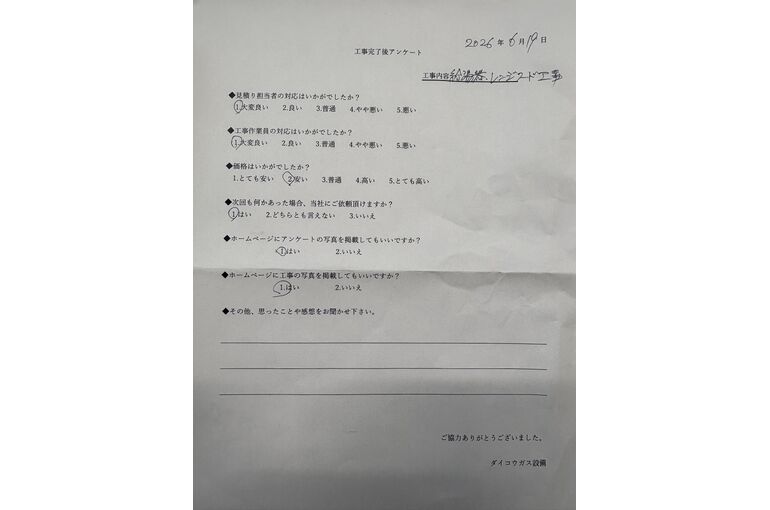 2026年6月19日
工事完了後アンケート
工事内容 給湯器、レンジフード工事
◆見積り担当者の対応はいかがでしたか?
1.大変良い 2.良い 3.普通 4.やや悪い 5.悪い
◆工事作業員の対応はいかがでしたか?
1.大変良い 2.良い 3.普通 4.やや悪い 5.悪い
◆価格はいかがでしたか?
1.とても安い 2.安い 3.普通 4.高い 5.とても高い
◆次回も何かあった場合、当社にご依頼頂けますか?
1.はい 2.どちらとも言えない 3.いいえ
◆ホームページにアンケートの写真を掲載してもいいですか?
1.はい 2.いいえ
◆ホームページに工事の写真を掲載してもいいですか?
1.はい 2.いいえ
◆その他、思ったことや感想をお聞かせ下さい。
ご協力ありがとうございました。
ダイコウガス設備